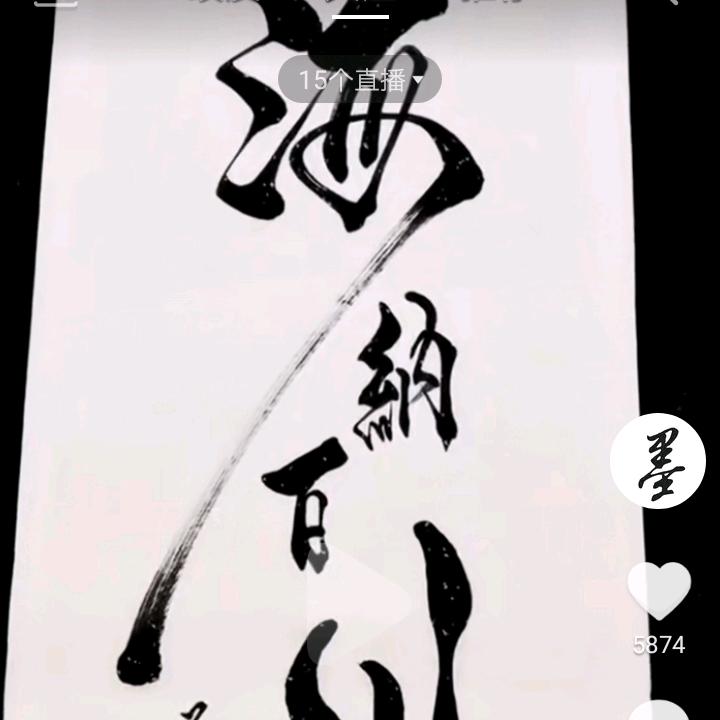 15个直播
海
納
百
川
墨
5874